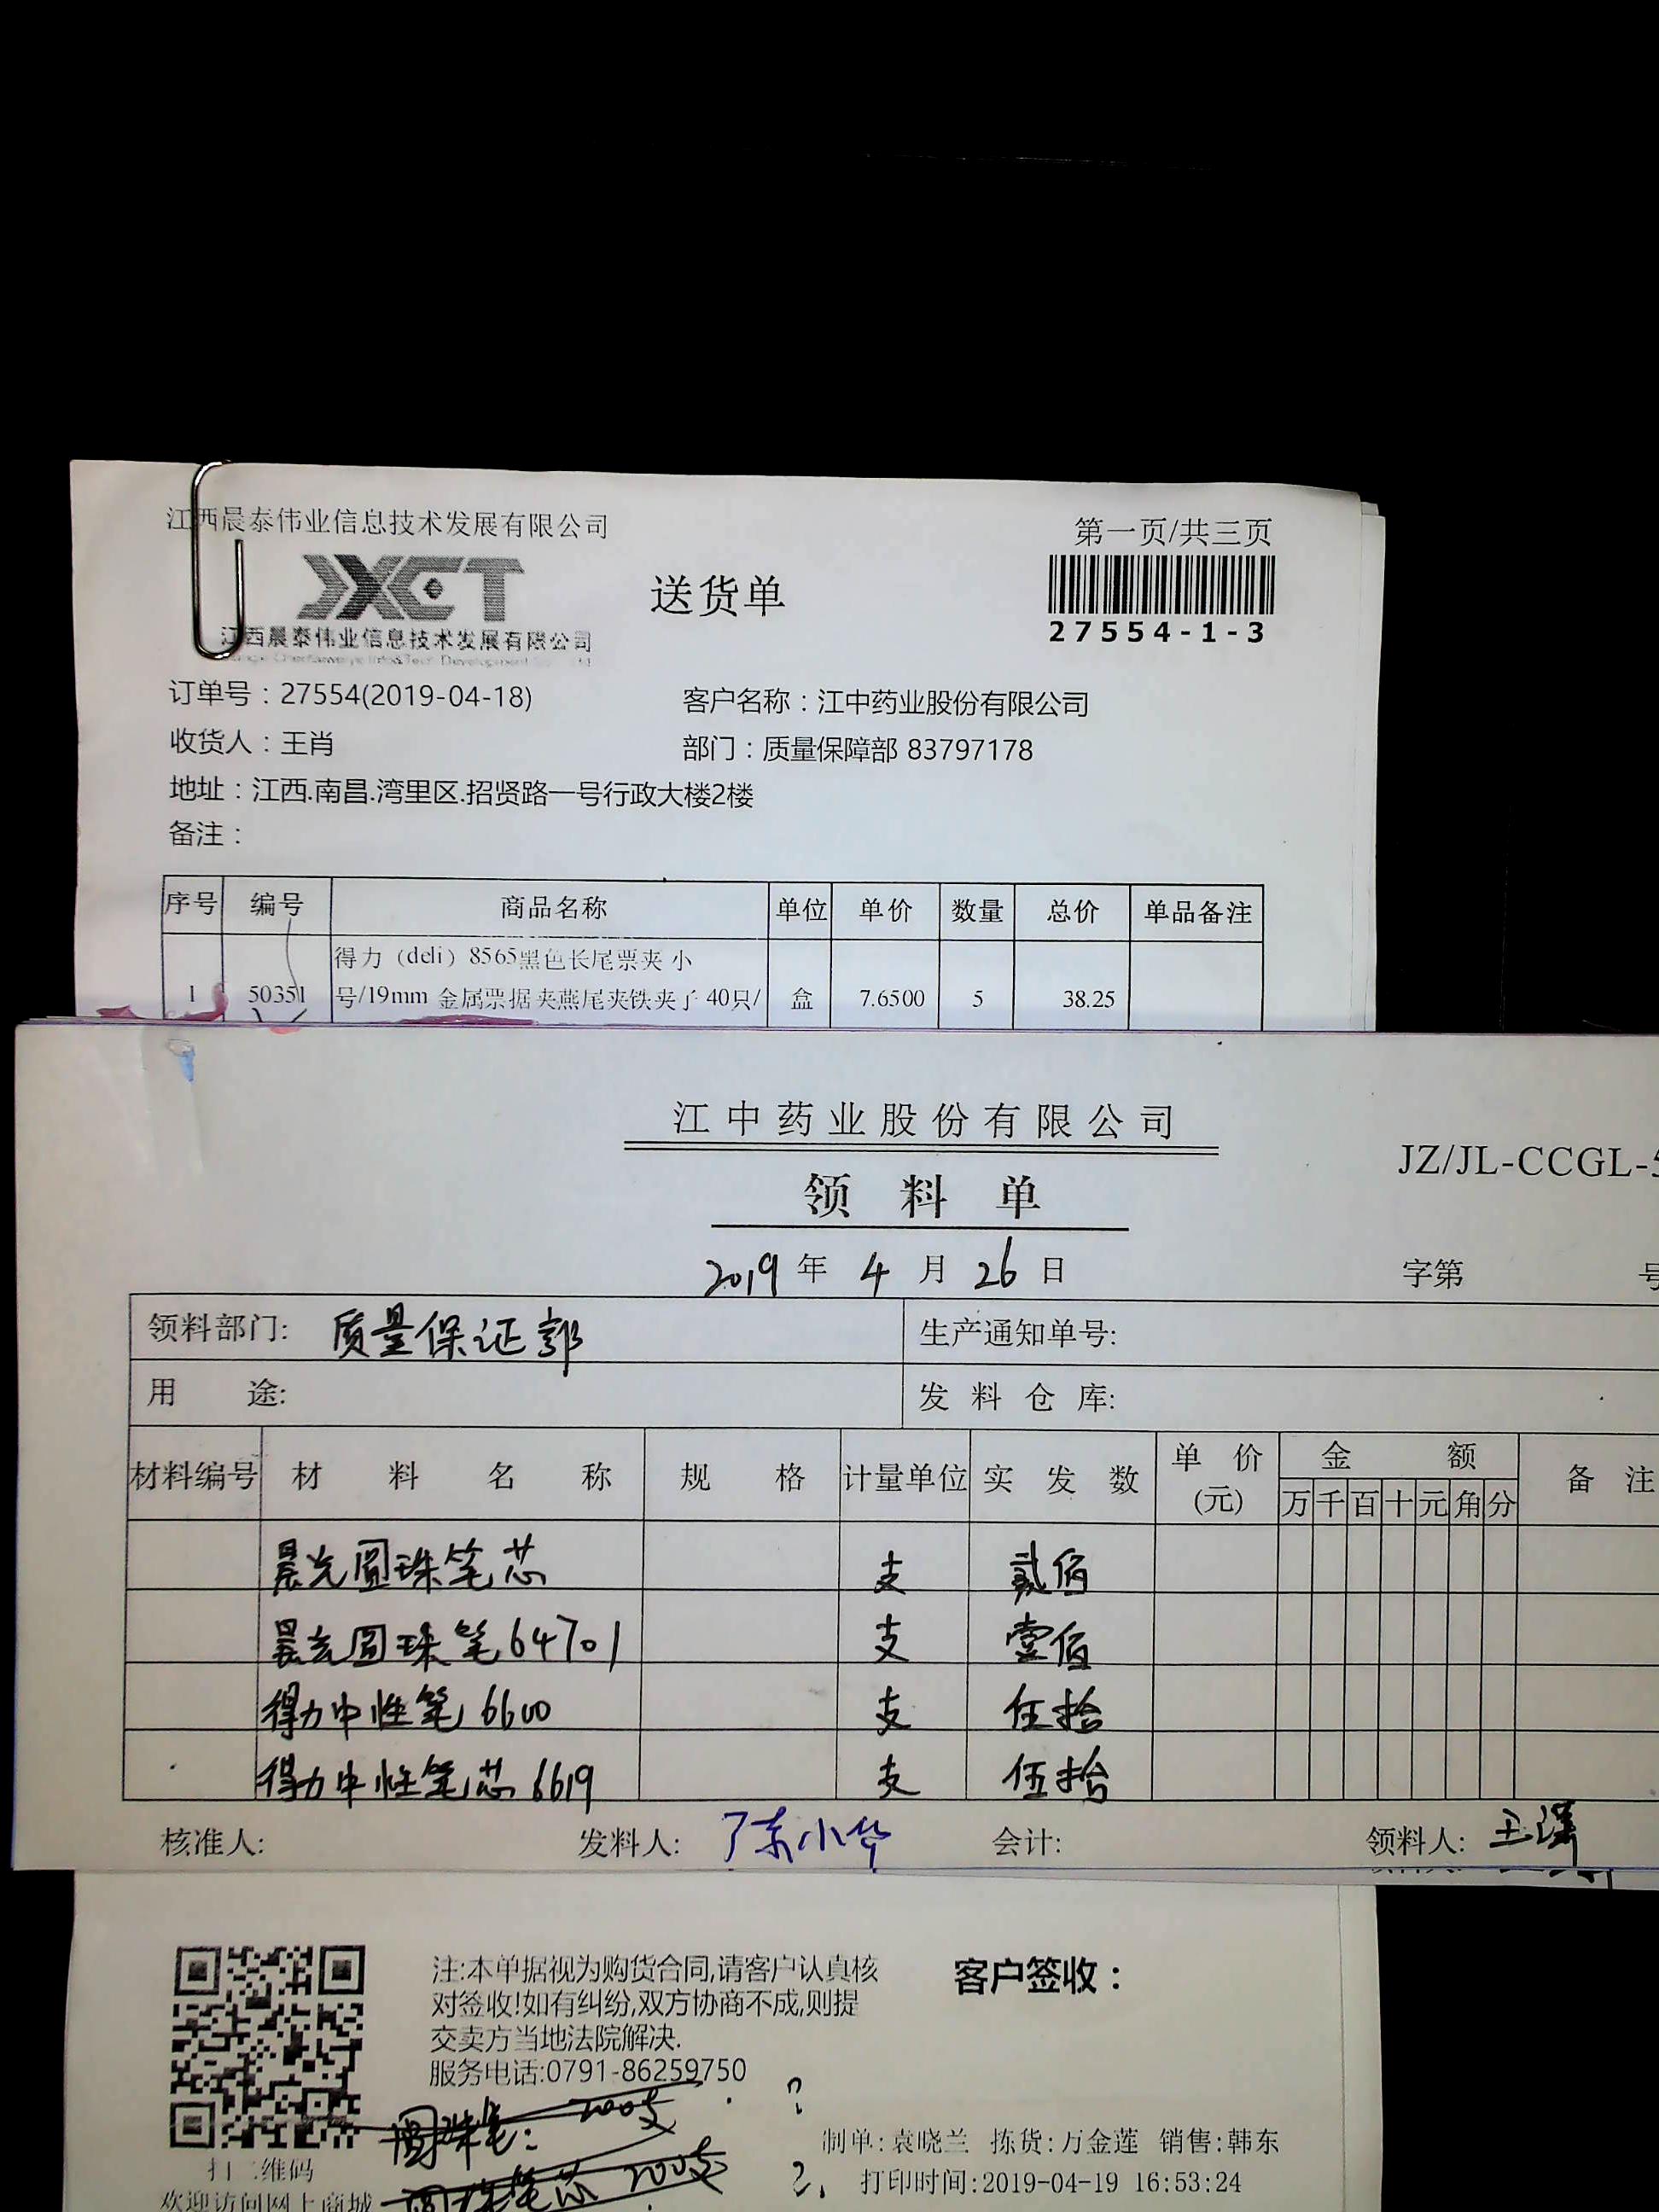 江西晨泰伟业信息技术发展有限公司
第一页/共三页
JXCT
送货单
27554-1-3
江西晨泰伟业信息技术发展有限公司
订单号：27554(2019-04-18) 客户名称：江中药业股份有限公司
收货人：王肖 部门：质量保障部 83797178
地址：江西.南昌.湾里区.招贤路一号行政大楼2楼
备注：
序号 编号 商品名称 单位 单价 数量 总价 单品备注
得力（deli）8565黑色长尾票夹 小
1 50351 号/19mm 金属票据夹燕尾夹铁夹子 40只/ 盒 7.6500 5 38.25
江中药业股份有限公司
JZ/JL-CCGL-
领料单
2019年 4月 26日 字第 号
领料部门: 质量保证部 生产通知单号:
用途: 发料仓库:
材料编号 材料名称 规格 计量单位 实发数 单价(元) 金额 备注
万 千 百 十 元 角 分
晨光圆珠笔芯 支 贰佰
晨光圆珠笔64701 支 壹佰
得力中性笔 6600 支 伍拾
得力中性笔芯 6619 支 伍拾
核准人: 发料人: 陈小华 会计: 领料人: 王
注:本单据视为购货合同,请客户认真核 客户签收：
对签收!如有纠纷,双方协商不成,则提
交卖方当地法院解决.
服务电话:0791-86259750
圆珠笔: 200支 ?
制单:袁晓兰 拣货:万金莲 销售:韩东
扫二维码 圆珠笔芯 200支 2.
打印时间:2019-04-19 16:53:24
欢迎访问网上商城